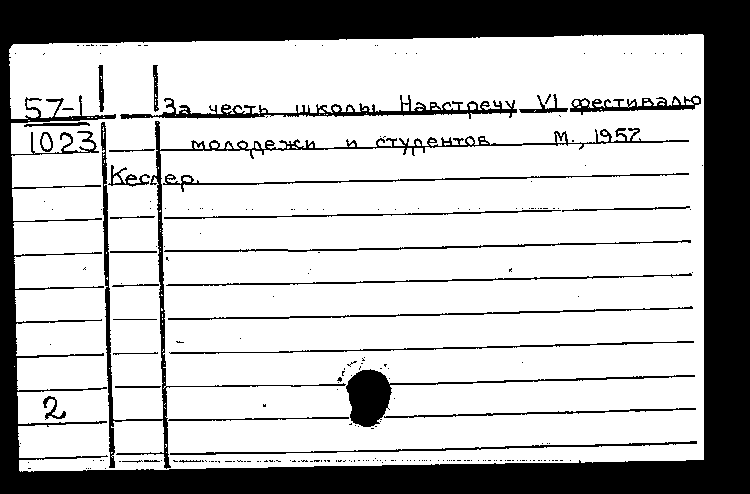 57-1 За честь школы. Навстречу VI фестивалю
1023 молодежи и студентов. М., 1957.
Кеслер.
2